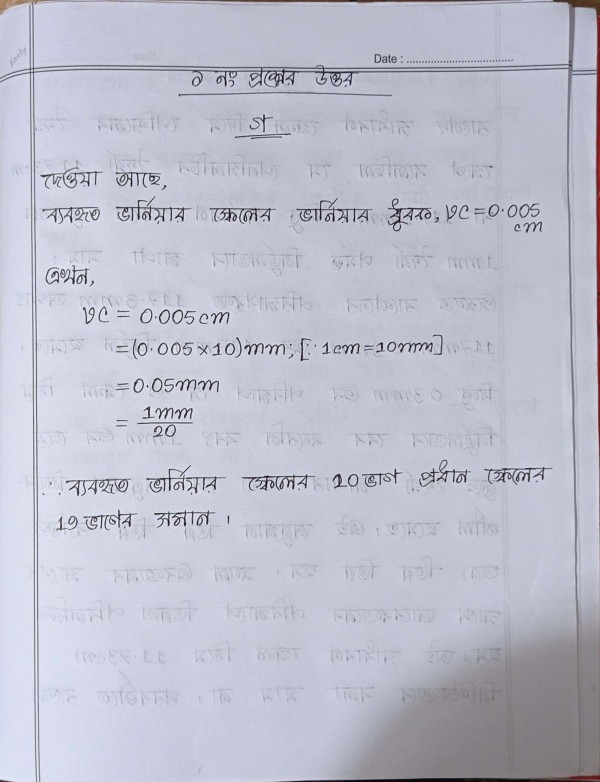 Date :
৩ নং প্রশ্নের উত্তর
গ
দেওয়া আছে,
ব্যবহৃত ভার্নিয়ার স্কেলের ভার্নিয়ার ধ্রুবক, VC = 0.005
cm
এখন,
VC = 0.005 cm
= (0.005 × 10) mm; [∵ 1cm = 10mm]
= 0.05mm
= 1mm/20
∴ ব্যবহৃত ভার্নিয়ার স্কেলের 20 ভাগ প্রধান স্কেলের
19 ভাগের সমান ।